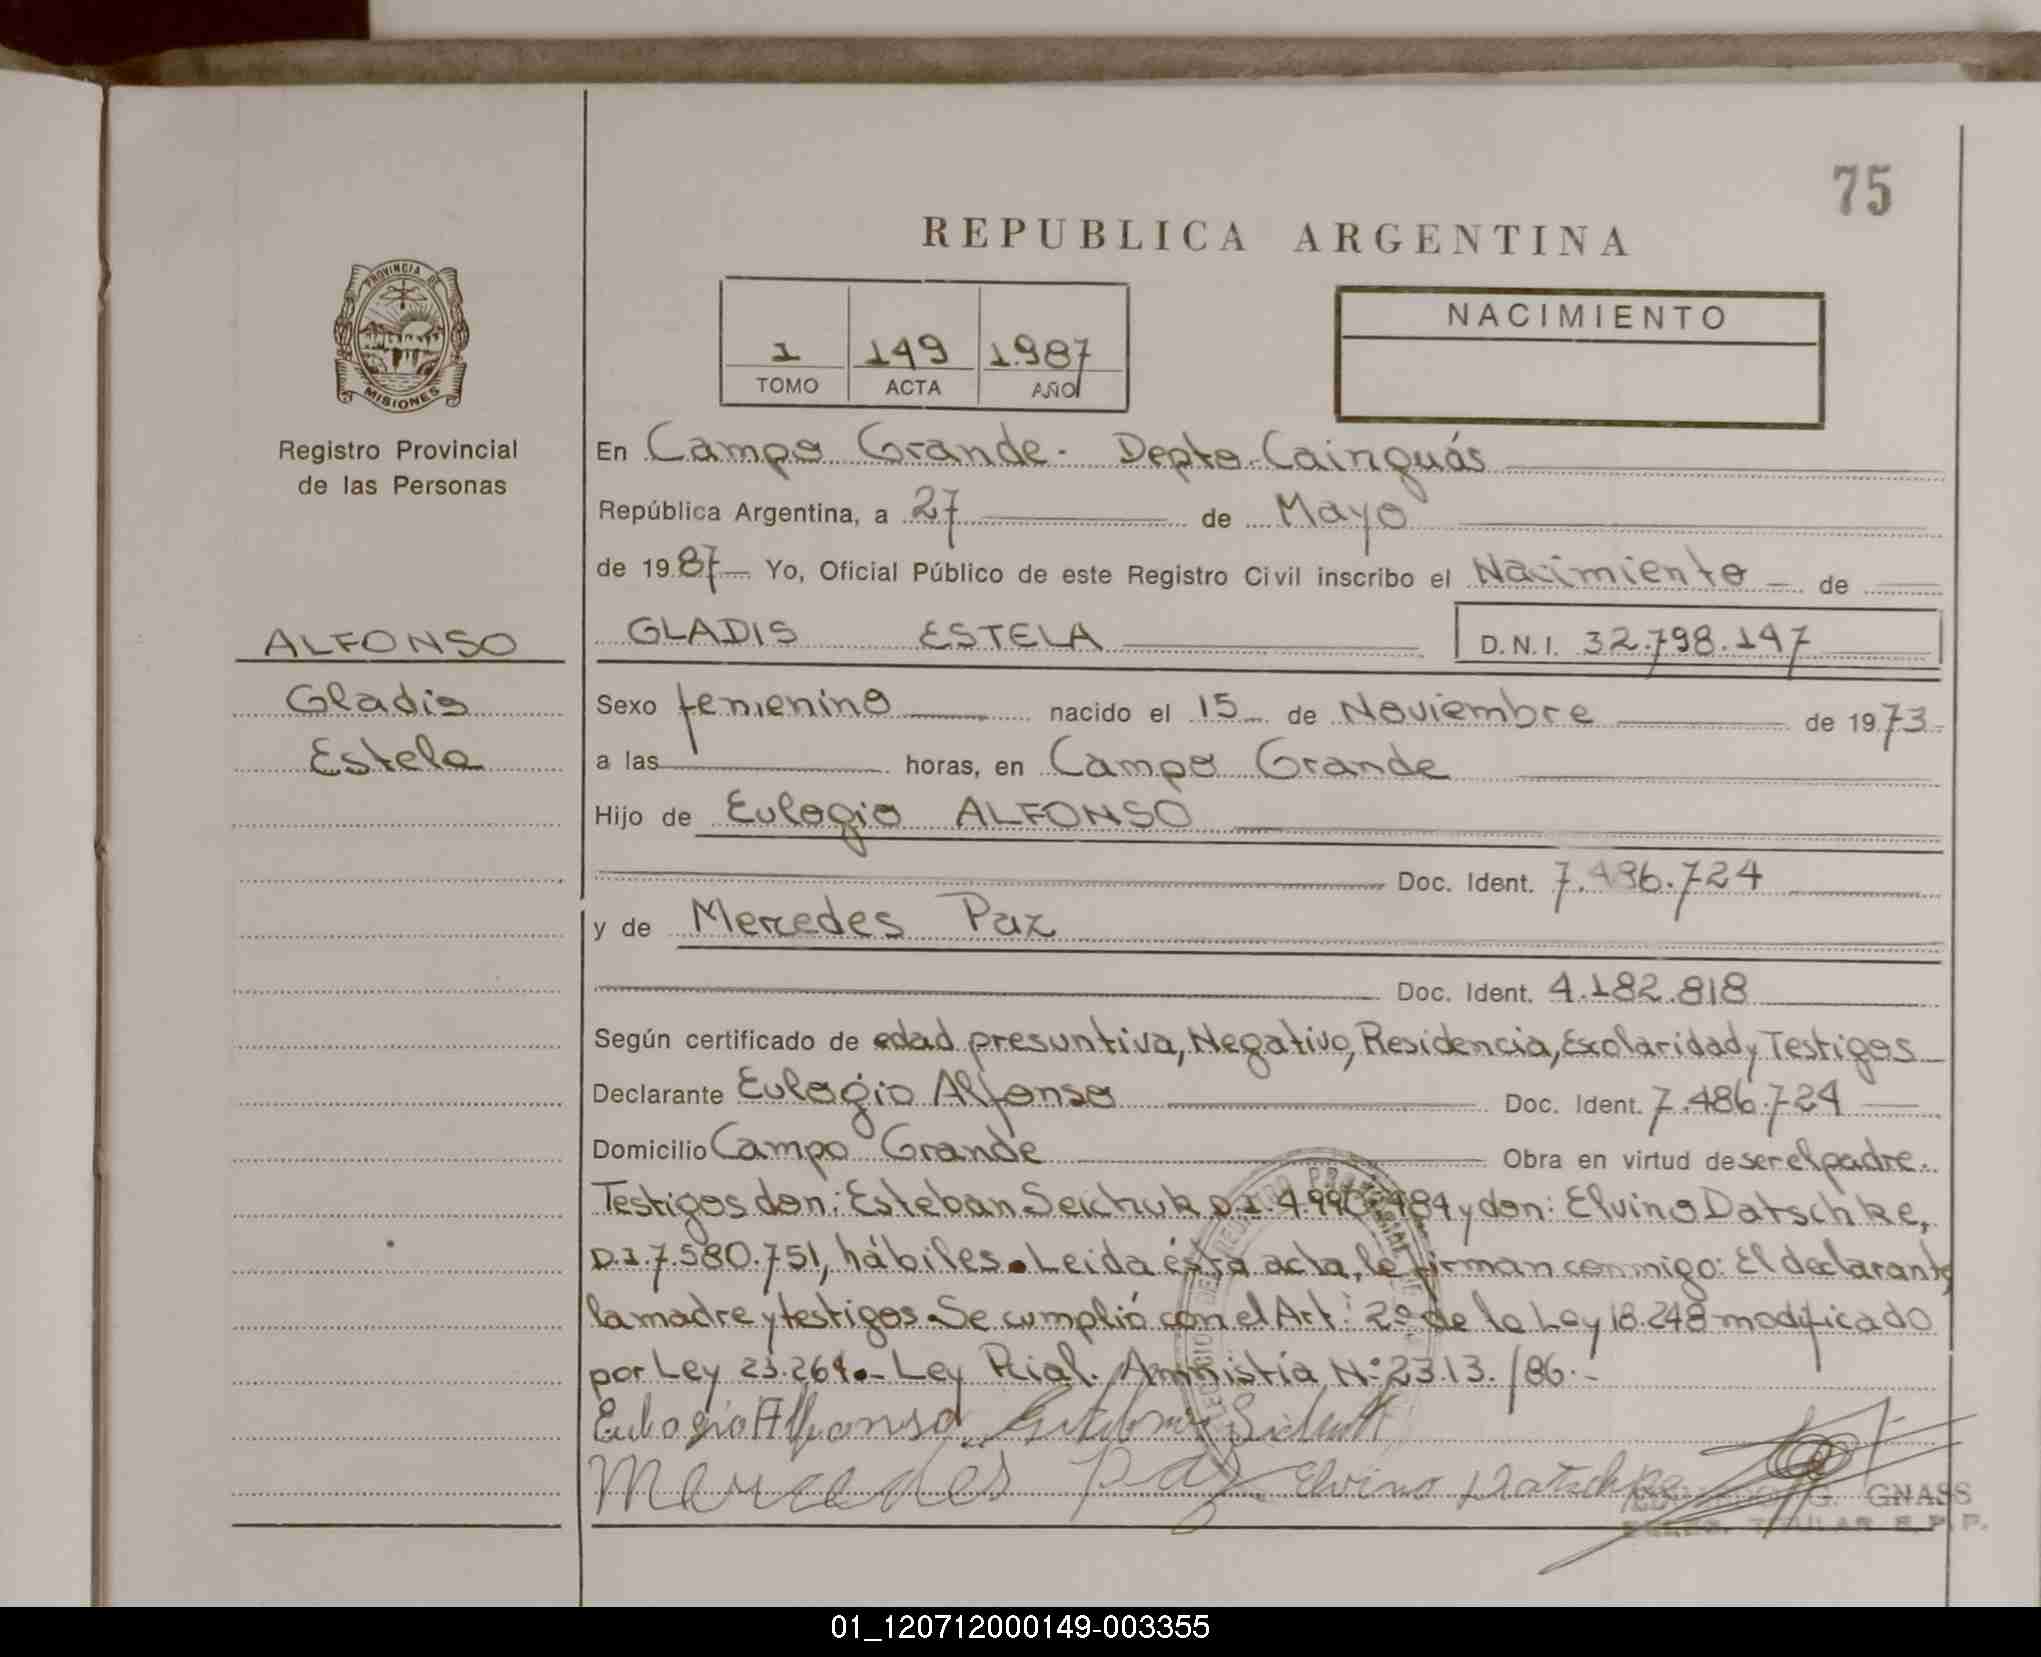 75
REPUBLICA ARGENTINA
PROVINCIA DE
MISIONES
Registro Provincial
de las Personas
1 149 1.987
TOMO ACTA AÑO
NACIMIENTO
En Campo Grande. Depto. Cainguás
República Argentina, a 27 de Mayo
de 1987 Yo, Oficial Público de este Registro Civil inscribo el Nacimiento de
ALFONSO
Gladis
Estela
GLADIS ESTELA D.N.I. 32.798.147
Sexo femenino nacido el 15 de Noviembre de 1973
a las horas, en Campo Grande
Hijo de Eulogio ALFONSO
Doc. Ident. 7.486.724
y de Mercedes Paz
Doc. Ident. 4.182.818
Según certificado de edad presuntiva, Negativo, Residencia, Escolaridad y Testigos
Declarante Eulogio Alfonso Doc. Ident. 7.486.724
Domicilio Campo Grande Obra en virtud de ser el padre.
Testigos don: Esteban Seichuk D.I. y don: Elvino Datschke,
D.I 7.580.751, hábiles. Leida ésta acta, le firman conmigo: El declarante,
la madre y testigos. Se cumplió con el Art: 2º de la Ley 18.248 modificado
por Ley 23.264.- Ley Pcial. Amnistía Nº 2313./86.-
Eulogio Alfonso
Mercedes Paz Elvino Datschke
G. GNASS
TITULAR R.P.P.
01_120712000149-003355